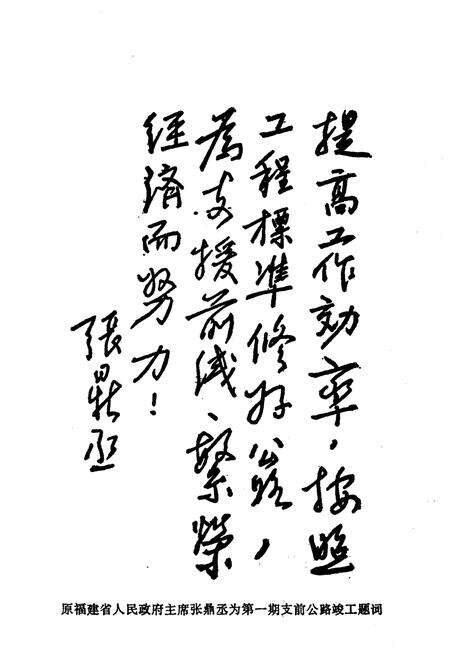 提高工作効率，按照
工程標準修好公路，
為支援前綫、繁榮
經濟而努力！
張鼎丞
原福建省人民政府主席张鼎丞为第一期支前公路竣工题词